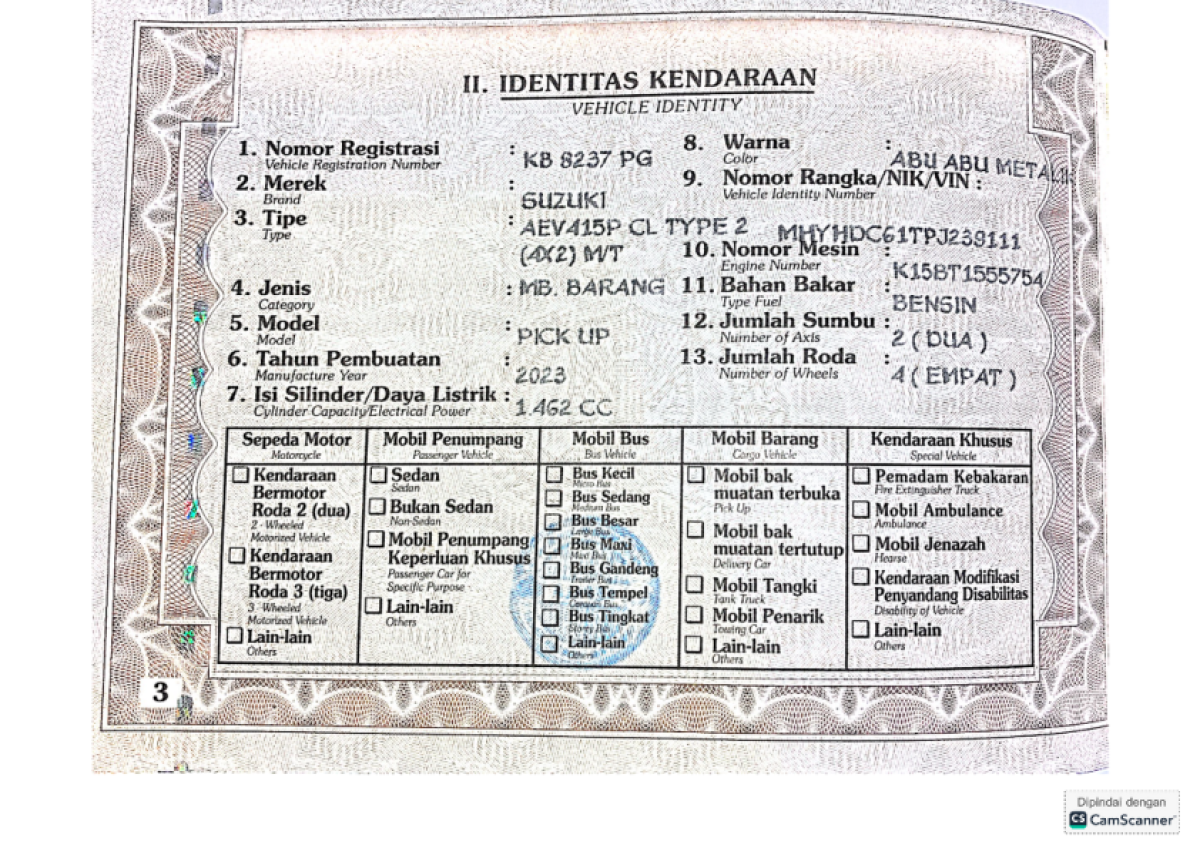 II. IDENTITAS KENDARAAN
VEHICLE IDENTITY
1. Nomor Registrasi : KB 8237 PG
Vehicle Registration Number
2. Merek : SUZUKI
Brand
3. Tipe : AEV415P CL TYPE 2
Type
(4X2) M/T
4. Jenis : MB. BARANG
Category
5. Model : PICK UP
Model
6. Tahun Pembuatan : 2023
Manufacture Year
7. Isi Silinder/Daya Listrik : 1.462 CC
Cylinder Capacity/Electrical Power
8. Warna : ABU ABU METALIK
Color
9. Nomor Rangka/NIK/VIN :
Vehicle Identity Number
MHYHDC61TPJ239111
10. Nomor Mesin : K15BT1555754
Engine Number
11. Bahan Bakar : BENSIN
Type Fuel
12. Jumlah Sumbu : 2 ( DUA )
Number of Axis
13. Jumlah Roda : 4 ( EMPAT )
Number of Wheels
Sepeda Motor
Motorcycle
Kendaraan
Bermotor
Roda 2 (dua)
2 - Wheeled
Motorized Vehicle
Kendaraan
Bermotor
Roda 3 (tiga)
3 - Wheeled
Motorized Vehicle
Lain-lain
Others
Mobil Penumpang
Passenger Vehicle
Sedan
Sedan
Bukan Sedan
Non-Sedan
Mobil Penumpang
Keperluan Khusus
Passenger Car for
Specific Purpose
Lain-lain
Others
Mobil Bus
Bus Vehicle
Bus Kecil
Micro Bus
Bus Sedang
Medium Bus
Bus Besar
Large Bus
Bus Maxi
Maxi Bus
Bus Gandeng
Trailer Bus
Bus Tempel
Caravan Bus
Bus Tingkat
Storey Bus
Lain-lain
Others
Mobil Barang
Cargo Vehicle
Mobil bak
muatan terbuka
Pick Up
Mobil bak
muatan tertutup
Delivery Car
Mobil Tangki
Tank Truck
Mobil Penarik
Towing Car
Lain-lain
Others
Kendaraan Khusus
Special Vehicle
Pemadam Kebakaran
Fire Extinguisher Truck
Mobil Ambulance
Ambulance
Mobil Jenazah
Hearse
Kendaraan Modifikasi
Penyandang Disabilitas
Disability of Vehicle
Lain-lain
Others
3
Dipindai dengan
CS CamScanner